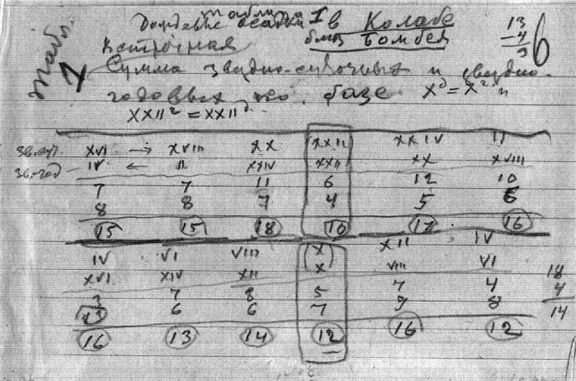 таблица I
Дождевые осадки в Колабе
Табл. 2
встречная близ Бомбея
13
-4
9
6
Сумма звездно-суточных и звездно-
годовых по базе x^д = x^г
XXII^г = XXII^д
зв.сут. XVI → XVIII XX XXII XXIV II
зв.год IV ← II XXIV XXII XX XVIII
7 7 11 6 12 10
8 8 7 4 5 6
15 15 18 10 17 16
IV VI VIII X XII IV
XVI XIV XII X VIII VI
3 7 8 5 7 4
13 6 6 7 9 8
16 13 14 12 16 12
18
4
14